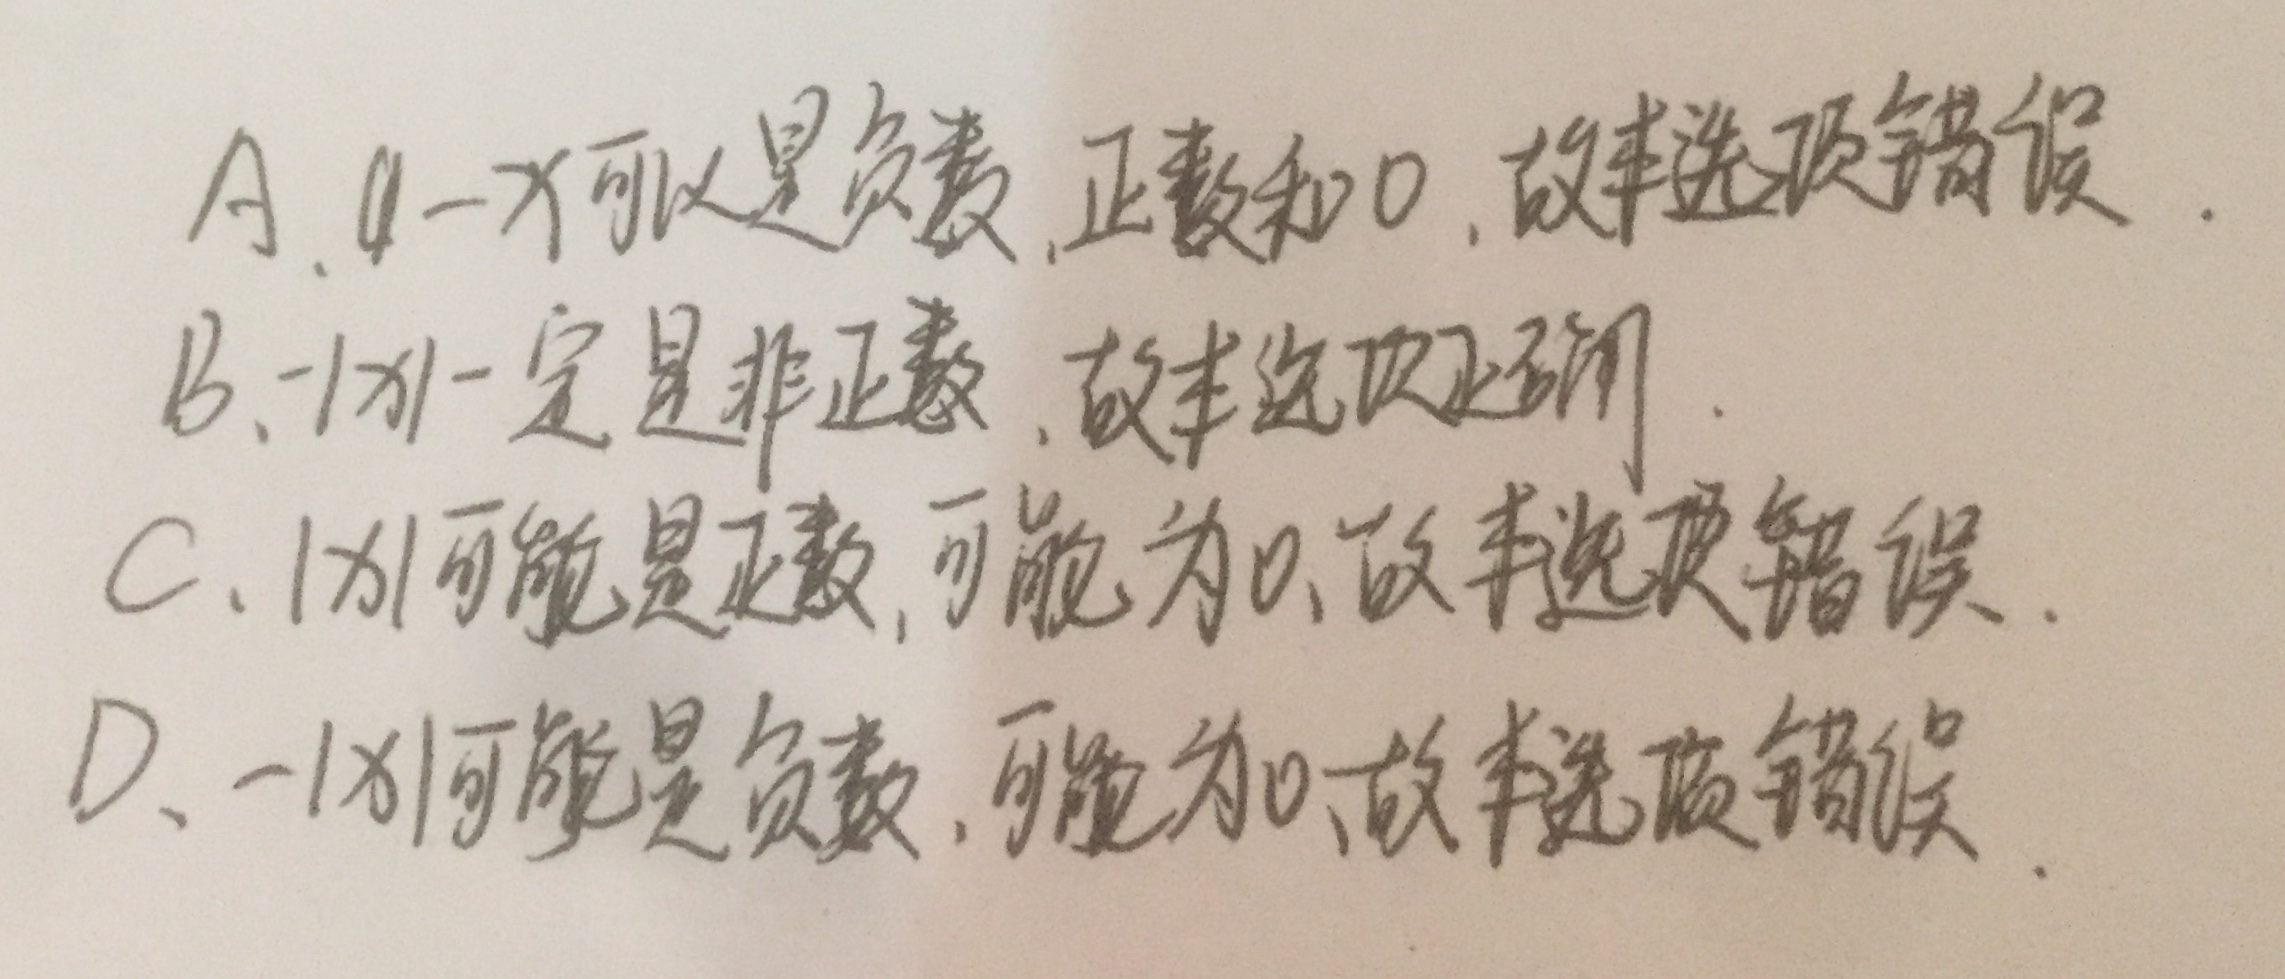 A、-x可以是负数、正数和0,故本选项错误.
B、-|x|一定是非正数,故本选项正确.
C、|x|可能是正数,可能为0,故本选项错误.
D、-|x|可能是负数,可能为0,故本选项错误.